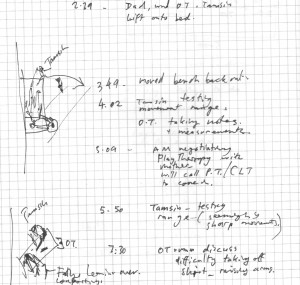 2.29 - Dad, und OT. Tamsin
Lift onto bed.
Tamsin
3.49 - moved bench back out.
4.02 Tamsin testing
movement range.
O.T. taking notes
+ measurements.
5.09 - AM negotiating
Play Therapy with
mother
will call P.T./CLT
to come d.
Tamsin
5.50 Tamsin - testing
range - (seemingly
sharp movements)
OT.
7.30 OT + mum discuss
difficulty taking off
shirt - raising arms.
Father leaning over